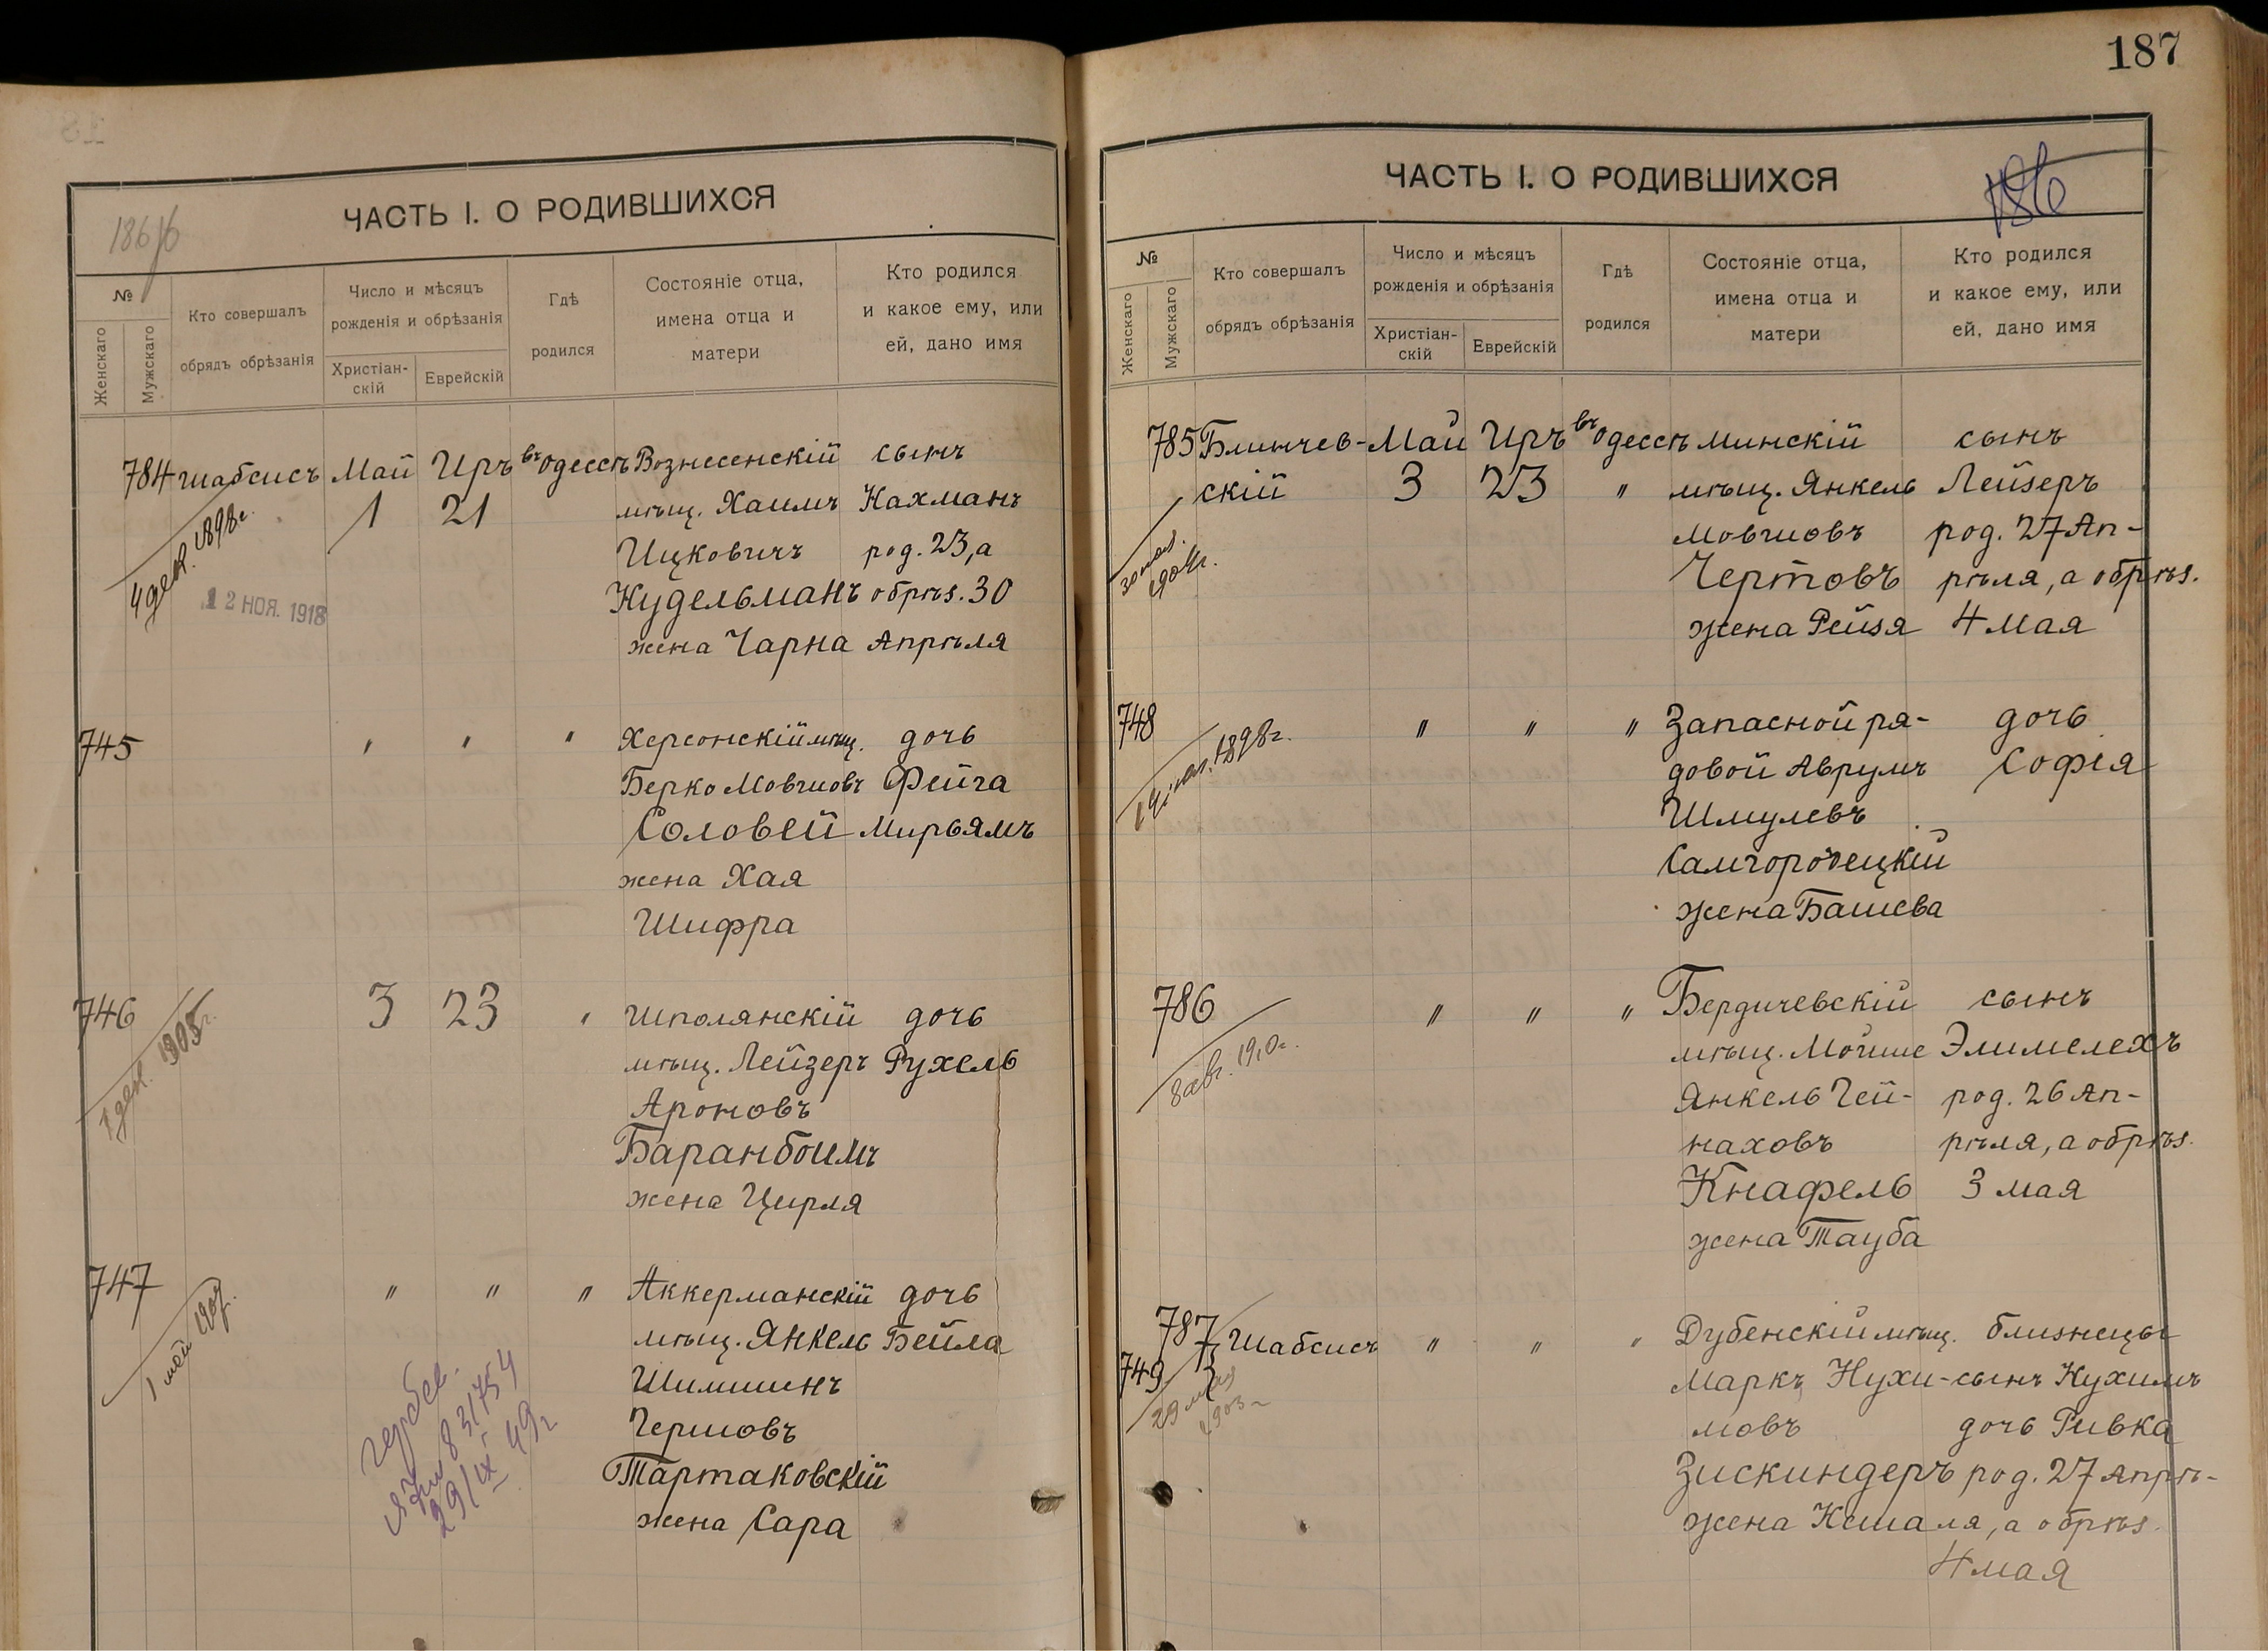 187
ЧАСТЬ I. О РОДИВШИХСЯ
№
Женскаго
Мужскаго
Кто совершалъ
обрядъ обрѣзанія
Число и мѣсяцъ
рожденія и обрѣзанія
Христіан-
скій
Еврейскій
Гдѣ
родился
Состояніе отца,
имена отца и
матери
Кто родился
и какое ему, или
ей, дано имя
784 Шабсисъ Май Иръ въ Одессѣ Вознесенскій сынъ
1 21 мѣщ. Хаимъ Нахманъ
4 дек. 1898г.
Ицковичъ род. 23, а
12 НОЯ. 1918
Нудельманъ обрѣз. 30
жена Чарна Апрѣля
745 " " " Херсонскій мѣщ. дочь
Берко Мовшовъ Фейга
Соловей Мирьямъ
жена Хая
Шифра
746 3 23 " Шполянскій дочь
мѣщ. Лейзеръ Рухель
1 дек. 1905г.
Ароновъ
Баранбоимъ
жена Цирля
747 " " " Аккерманскій дочь
мѣщ. Янкель Бейла
1 май 1907.
Шимшинъ
Гершовъ
Тартаковскій
жена Сара
831754
29/IX 49г
ЧАСТЬ I. О РОДИВШИХСЯ
186
№
Женскаго
Мужскаго
Кто совершалъ
обрядъ обрѣзанія
Число и мѣсяцъ
рожденія и обрѣзанія
Христіан-
скій
Еврейскій
Гдѣ
родился
Состояніе отца,
имена отца и
матери
Кто родился
и какое ему, или
ей, дано имя
785 Блинчев- Май Иръ въ Одессѣ Минскій сынъ
скій 3 23 " мѣщ. Янкель Лейзеръ
1904г.
Мовшовъ род. 27 Ап-
Чертовъ рѣля, а обрѣз.
жена Рейзя 4 мая
748 " " " Запасной ря- дочь
довой Аврумъ Софія
1898г.
Шмулевъ
Самгородецкій
жена Башева
786 " " " Бердичевскій сынъ
мѣщ. Мойше Элимелехъ
8 авг. 1910г.
Янкель Чей- род. 26 Ап-
наховъ рѣля, а обрѣз.
Кнафель 3 мая
жена Тауба
787 Шабсисъ " " " Дубенскій мѣщ. близнецы
749 Маркъ Нухи- сынъ Нухимъ
29 мая
1903г
мовъ дочь Ривка
Зискиндеръ род. 27 Апрѣ-
жена Неша ля, а обрѣз.
4 мая